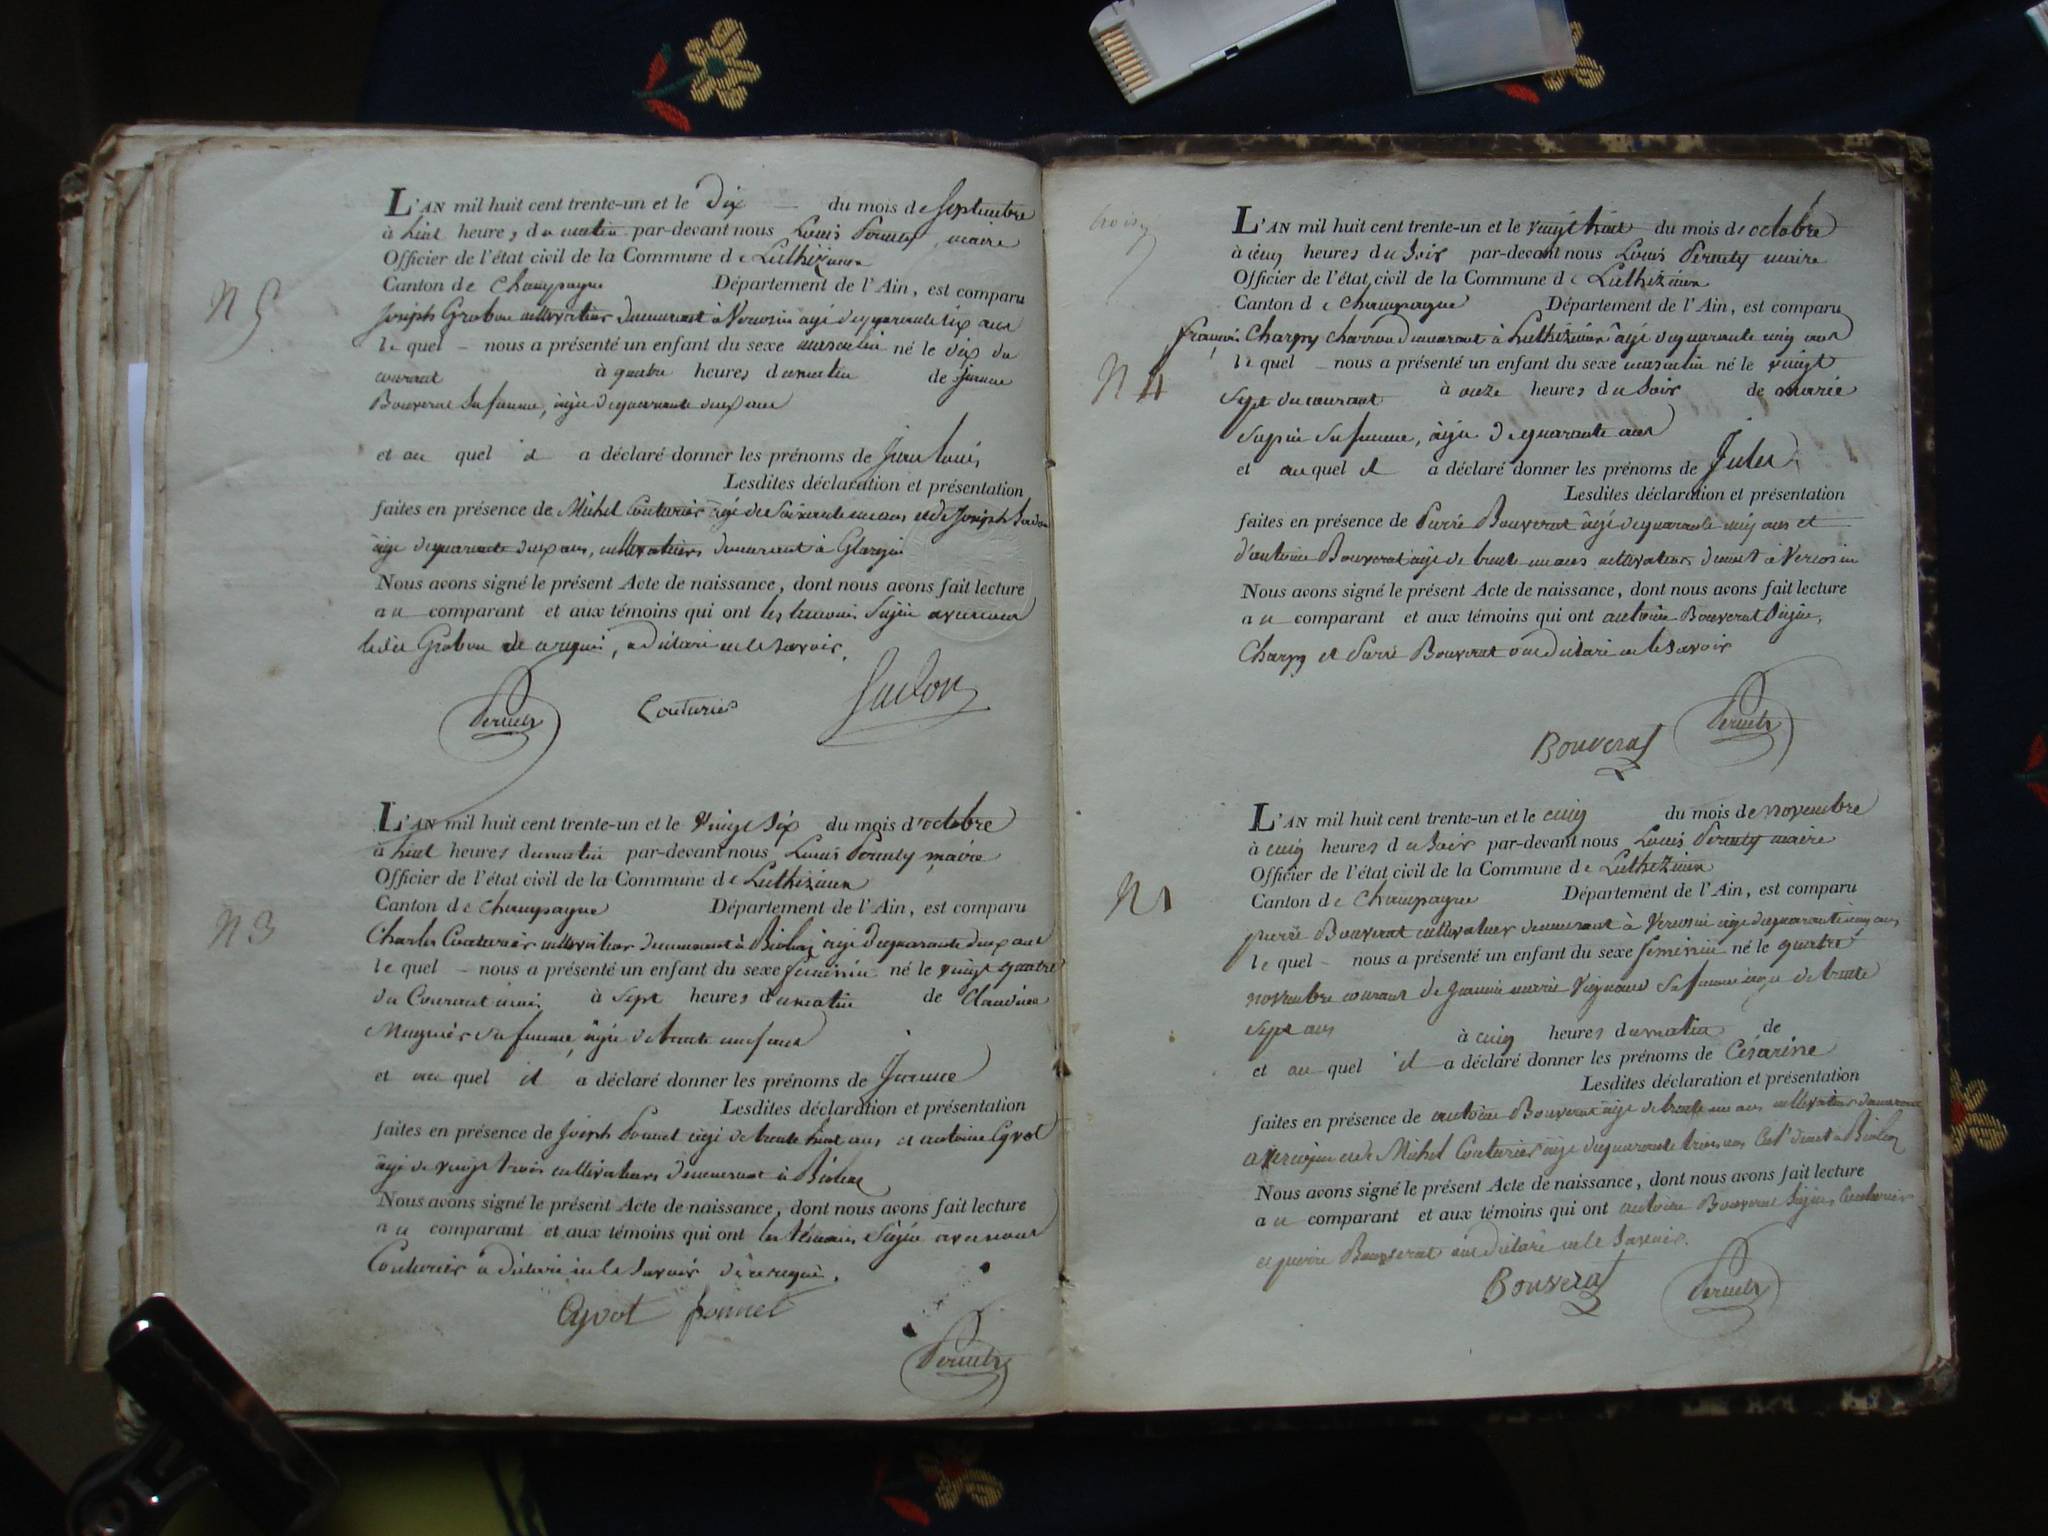 L'AN mil huit cent trente-un et le Dix du mois de Septembre
à huit heures du matin par-devant nous Louis maire
Officier de l'état civil de la Commune de Luthézieu
Canton de Champagne Département de l'Ain, est comparu
Joseph cultivateur demeurant à agé de quarante six ans
lequel nous a présenté un enfant du sexe masculin né le dix du
courant à quatre heures du matin de Jeanne
Bouverat sa femme, agée de quarante deux ans
et au quel il a déclaré donner les prénoms de Jean Louis
Lesdites déclaration et présentation
faites en présence de Michel Couturier agé de Soixante un ans et de Joseph
agé de quarante deux ans, cultivateurs demeurant à
Nous avons signé le présent Acte de naissance, dont nous avons fait lecture
au comparant et aux témoins qui ont les témoins Signé avec nous
ledit de ce requis, a déclaré ne le savoir.
Couturier
N 5
L'AN mil huit cent trente-un et le vingt Six du mois d'octobre
à huit heures du matin par-devant nous Louis maire
Officier de l'état civil de la Commune de Luthézieu
Canton de Champagne Département de l'Ain, est comparu
Charles Couturier cultivateur demeurant à agé de quarante deux ans
lequel nous a présenté un enfant du sexe féminin né le vingt quatre
du Courant mois à Sept heures du matin de Claudine
sa femme, agée de trente neuf ans
et au quel il a déclaré donner les prénoms de Jeanne
Lesdites déclaration et présentation
faites en présence de Joseph Ponnet agé de trente huit ans et antoine Cyvot
agé de vingt trois cultivateurs demeurant à
Nous avons signé le présent Acte de naissance, dont nous avons fait lecture
au comparant et aux témoins qui ont les témoins Signé avec nous
Couturier a déclaré ne le Savoir de ce requis.
Cyvot Ponnet
N 3
L'AN mil huit cent trente-un et le vingt huit du mois d'octobre
à cinq heures du Soir par-devant nous Louis maire
Officier de l'état civil de la Commune de Luthézieu
Canton de Champagne Département de l'Ain, est comparu
françois Charpy charron demeurant à Luthézieu agé de quarante cinq ans
lequel nous a présenté un enfant du sexe masculin né le vingt
Sept du courant à onze heures du Soir de marie
sa femme, agée de quarante ans
et au quel il a déclaré donner les prénoms de Jules
Lesdites déclaration et présentation
faites en présence de Pierre Bouverat agé de quarante cinq ans et
d'antoine Bouverat agé de trente un ans cultivateurs à
Nous avons signé le présent Acte de naissance, dont nous avons fait lecture
au comparant et aux témoins qui ont antoine Bouverat Signé,
Charpy et Pierre Bouverat ont déclaré ne le Savoir
Bouverat
N 4
L'AN mil huit cent trente-un et le cinq du mois de novembre
à cinq heures du Soir par-devant nous Louis maire
Officier de l'état civil de la Commune de Luthézieu
Canton de Champagne Département de l'Ain, est comparu
pierre Bouverat cultivateur demeurant à agé de quarante cinq ans
lequel nous a présenté un enfant du sexe féminin né le quatre
novembre courant de marie sa femme agée de trente
Sept ans à cinq heures du matin de
et au quel il a déclaré donner les prénoms de Césarine
Lesdites déclaration et présentation
faites en présence de antoine Bouverat agé de trente un ans cultivateur demeurant
à et de Michel Couturier agé de quarante trois ans
Nous avons signé le présent Acte de naissance, dont nous avons fait lecture
au comparant et aux témoins qui ont antoine Bouverat Signé, Couturier
et pierre Bouverat ont déclaré ne le Savoir.
Bouverat
N 1